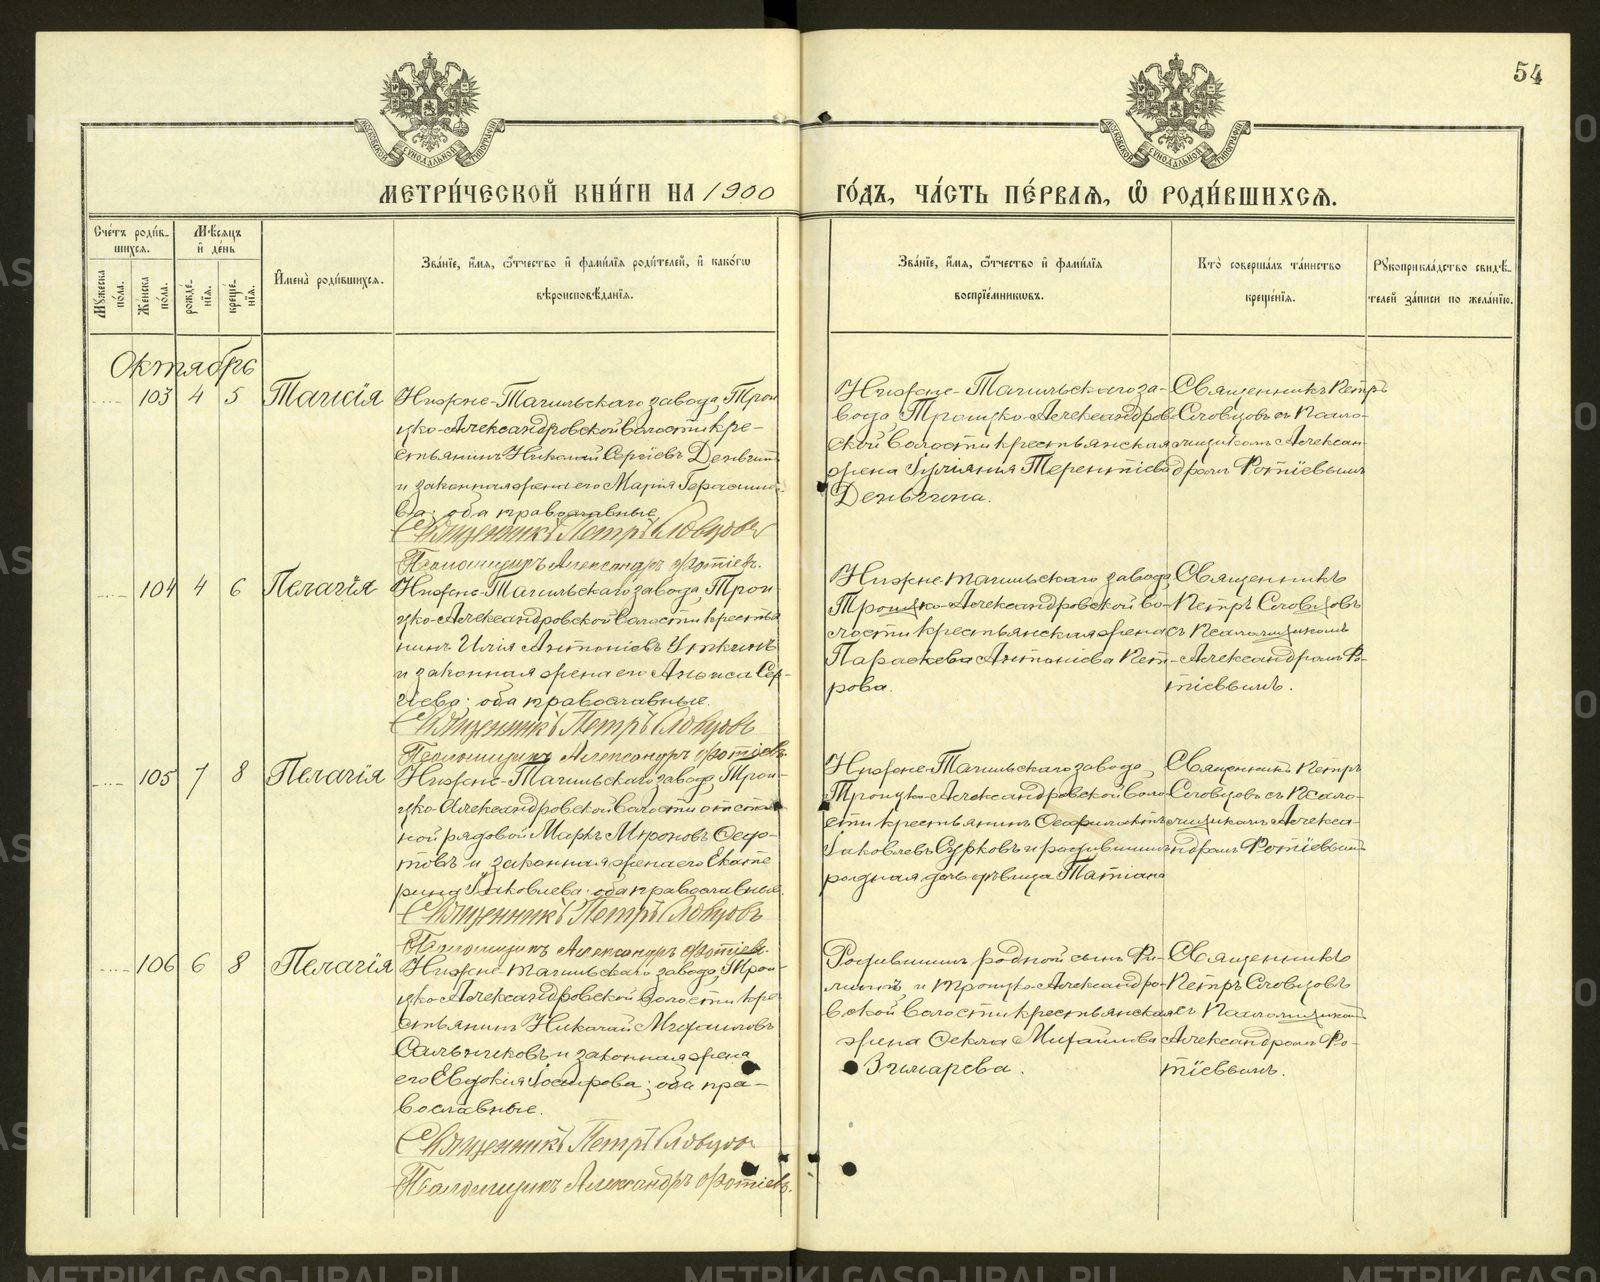 54
МЕТРИ́ЧЕСКОЙ КНИ́ГИ НА 1900 ГО́ДЪ, ЧА́СТЬ ПЕ́РВАѦ, Ѿ РОДИ́ВШИХСѦ.
Сче́тъ роди́в-
шихсѧ.
Мѣ́сѧцъ
и҆ де́нь
Мꙋ́жеска по́ла.
Же́нска по́ла.
рожде́нїѧ.
креще́нїѧ.
И҆мена̀ роди́вшихсѧ.
Зва́нїе, и҆́мѧ, ѻ҆́тчество и҆ фами́лїѧ роди́телей, и҆ како́гѡ
вѣроисповѣ́данїѧ.
Зва́нїе, и҆́мѧ, ѻ҆́тчество и҆ фами́лїѧ
воспрїе́мникѡвъ.
Кто̀ соверша́лъ та́инство
креще́нїѧ.
Рꙋкоприкла́дство свидѣ́-
телей за́писи по жела́нїю.
Октябрь
103 4 5 Таисія
Нижне-Тагильскаго завода, Трои
цко-Александровской волости кре-
стьянинъ Николай Сергіевъ
и законная жена его Марія Герасимо-
ва; оба православные.
Священникъ Петръ Словцовъ
Псаломщикъ Александръ Фотіевъ.
Нижне-Тагильскаго за-
вода, Троицко-Александров-
ской волости крестьянская
жена Іуліанія Терентіева
Священникъ Петръ
Словцовъ съ Псало-
мщикомъ Алексан-
дромъ Фотіевымъ
104 4 6 Пелагія
Нижне-Тагильскаго завода, Трои
цко-Александровской волости крестья
нинъ Илія Антоніевъ Уткинъ
и законная жена его Анфиса Сер-
гіева; оба православные.
Священникъ Петръ Словцовъ
Псаломщикъ Александръ Фотіевъ.
Нижне-тагильскаго завода,
Троицко-Александровской во-
лости крестьянская жена
Параскева Антоніева Пет-
рова.
Священникъ
Петръ Словцовъ
съ Псаломщикомъ
Александромъ Фо-
тіевымъ.
105 7 8 Пелагія
Нижне-Тагильскаго завода, Трои-
цко-Александровской волости отстав
ной рядовой Маркъ Мироновъ Федо-
товъ и законная жена его Екате
рина Іаковлева; оба православные.
Священникъ Петръ Словцовъ
Псаломщикъ Александръ Фотіевъ.
Нижне-Тагильскаго завода,
Троицко-Александровской воло-
сти крестьянинъ Феофилактъ
Іаковлевъ Сурковъ и родившимъ
родная дочь дѣвица Татіана
Священникъ Петръ
Словцовъ съ Псало-
мщикомъ Алекса-
ндромъ Фотіевымъ
106 6 8 Пелагія
Нижне-тагильскаго завода, Трои-
цко-Александровской волости кре
стьянинъ Николай Михаиловъ
Сальниковъ и законная жена
его Евдокія; оба пра-
вославные.
Священникъ Петръ Словцовъ
Псаломщикъ Александръ Фотіевъ.
Родившимъ родной сынъ Фи-
липпъ и троицко-Александро-
вской волости крестьянская
жена Фекла Михаилова
Священникъ
Петръ Словцовъ
съ Псаломщикомъ
Александромъ Фо-
тіевымъ.
METRIKI.GASO-URAL.RU